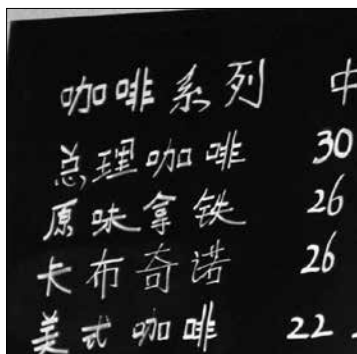 咖啡系列 中
总理咖啡 30
原味拿铁 26
卡布奇诺 26
美式咖啡 22